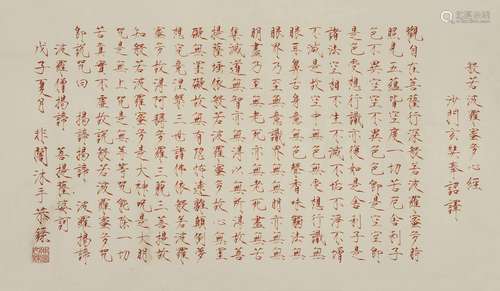 般若波羅蜜多心經
沙門玄奘奉詔譯
觀自在菩薩行深般若波羅蜜多時
照見五蘊皆空度一切苦厄舍利子
色不異空空不異色色即是空空即
是色受想行識亦復如是舍利子是
諸法空相不生不滅不垢不淨不增
不減是故空中無色無受想行識無
眼耳鼻舌身意無色聲香味觸法無
眼界乃至無意識界無無明亦無無
明盡乃至無老死亦無老死盡無苦
集滅道無智亦無得以無所得故菩
提薩埵依般若波羅蜜多故心無罣
礙無罣礙故無有恐怖遠離顛倒夢
想究竟涅槃三世諸佛依般若波羅
蜜多故得阿耨多羅三藐三菩提故
知般若波羅蜜多是大神咒是大明
咒是無上咒是無等等咒能除一切
苦真實不虛故說般若波羅蜜多咒
即說咒曰 揭諦揭諦 波羅揭諦
波羅僧揭諦 菩提薩婆訶
戊子夏月 非闇沐手恭錄